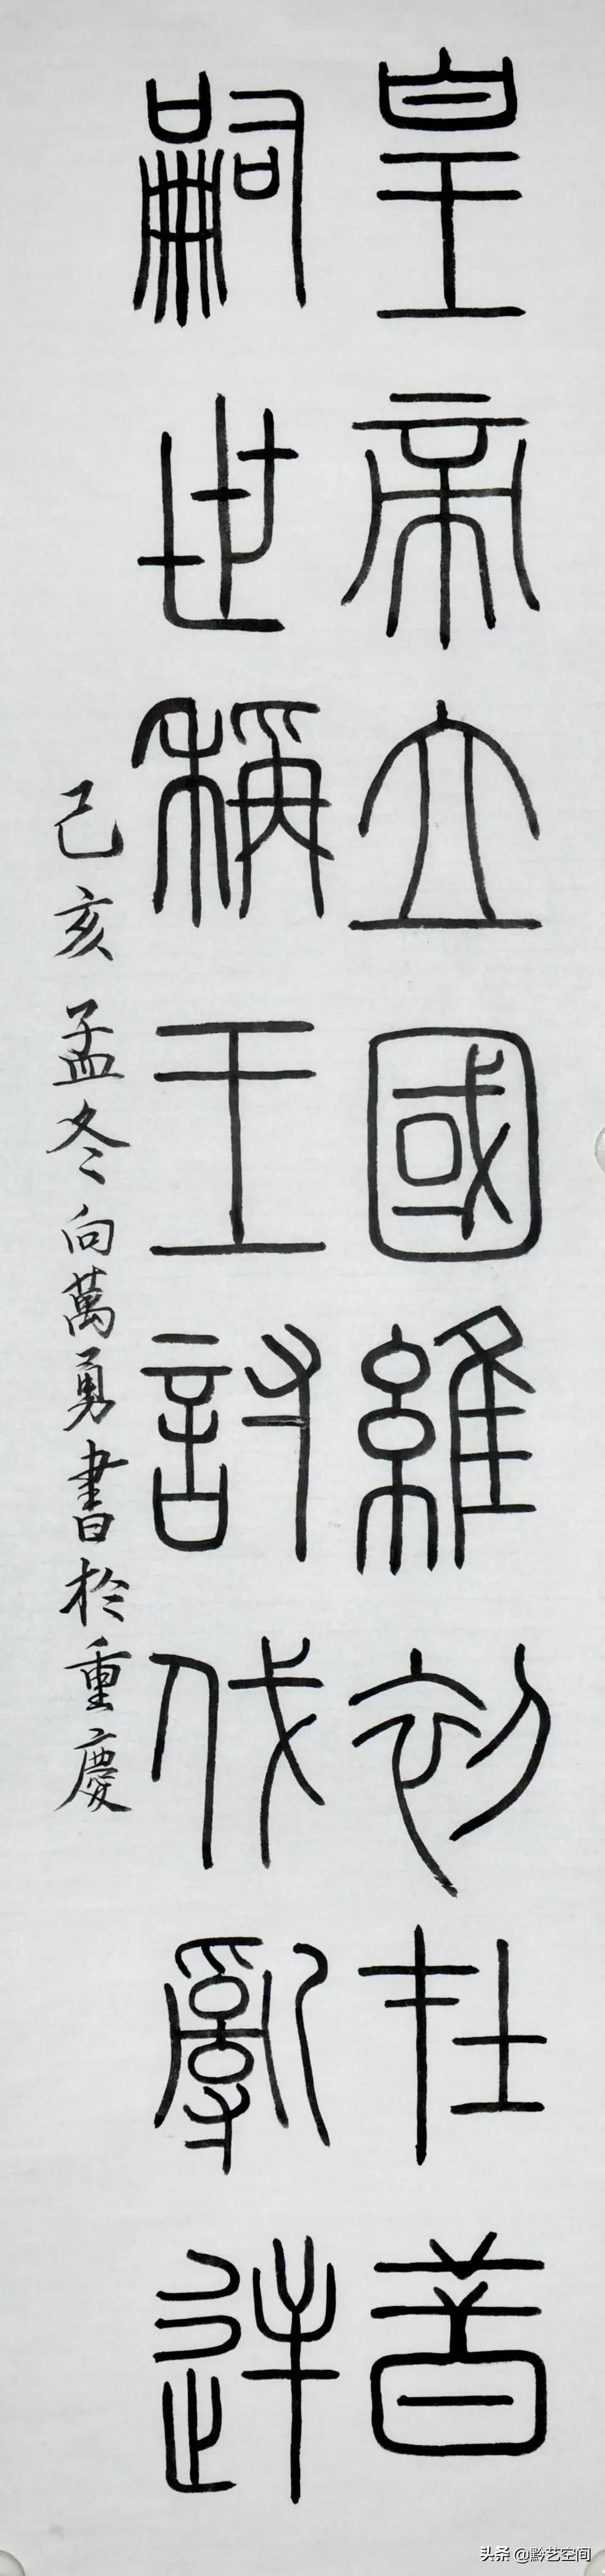 皇帝立國維初在昔
嗣世稱王討伐亂逆
己亥孟冬向萬勇書於重慶
头条 @黔艺空间